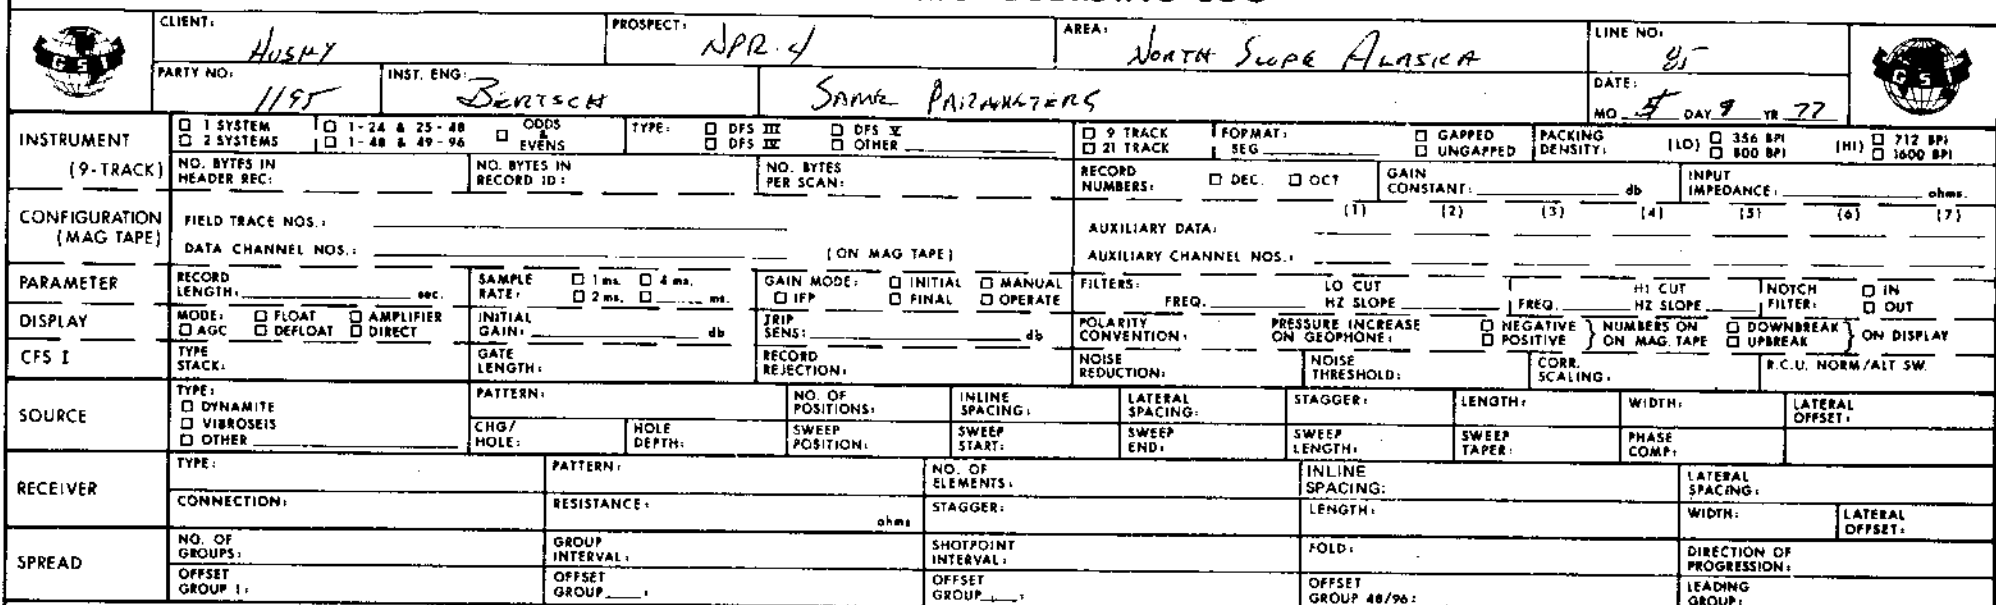 CLIENT: HUSKY PROSPECT: NPR-4 AREA: NORTH SLOPE ALASKA LINE NO: 85
GSI
PARTY NO: 1195 INST. ENG: BERTSCH SAME PARAMETERS DATE: MO 5 DAY 9 YR 77
GSI
INSTRUMENT (9-TRACK)
☐ 1 SYSTEM ☐ 1-24 & 25-48 ☐ ODDS & EVENS TYPE: ☐ DFS III ☐ DFS V ☐ 9 TRACK FORMAT: ☐ GAPPED PACKING DENSITY: (LO) ☐ 356 BPI (HI) ☐ 712 BPI
☐ 2 SYSTEMS ☐ 1-48 & 49-96 ☐ DFS IV ☐ OTHER ☐ 21 TRACK SEG ☐ UNGAPPED ☐ 800 BPI ☐ 1600 BPI
NO. BYTES IN HEADER REC: NO. BYTES IN RECORD ID: NO. BYTES PER SCAN: RECORD NUMBERS: ☐ DEC. ☐ OCT GAIN CONSTANT: db INPUT IMPEDANCE: ohms.
CONFIGURATION (MAG TAPE)
(1) (2) (3) (4) (5) (6) (7)
FIELD TRACE NOS.: AUXILIARY DATA:
DATA CHANNEL NOS.: (ON MAG TAPE) AUXILIARY CHANNEL NOS.:
PARAMETER
RECORD LENGTH: sec. SAMPLE RATE: ☐ 1 ms. ☐ 4 ms. ☐ 2 ms. ☐ ms. GAIN MODE: ☐ INITIAL ☐ MANUAL ☐ IFP ☐ FINAL ☐ OPERATE FILTERS: LO CUT FREQ. HZ SLOPE HI CUT FREQ. HZ SLOPE NOTCH FILTER: ☐ IN ☐ OUT
DISPLAY
MODE: ☐ FLOAT ☐ AMPLIFIER ☐ AGC ☐ DEFLOAT ☐ DIRECT INITIAL GAIN: db TRIP SENS: db POLARITY CONVENTION: PRESSURE INCREASE ON GEOPHONE: ☐ NEGATIVE ☐ POSITIVE } NUMBERS ON MAG. TAPE ☐ DOWNBREAK ☐ UPBREAK } ON DISPLAY
CFS I
TYPE STACK: GATE LENGTH: RECORD REJECTION: NOISE REDUCTION: NOISE THRESHOLD: CORR. SCALING: R.C.U. NORM/ALT SW.
SOURCE
TYPE: PATTERN: NO. OF POSITIONS: INLINE SPACING: LATERAL SPACING: STAGGER: LENGTH: WIDTH: LATERAL OFFSET:
☐ DYNAMITE
☐ VIBROSEIS
☐ OTHER
CHG/HOLE: HOLE DEPTH: SWEEP POSITION: SWEEP START: SWEEP END: SWEEP LENGTH: SWEEP TAPER: PHASE COMP:
RECEIVER
TYPE: PATTERN: NO. OF ELEMENTS: INLINE SPACING: LATERAL SPACING:
CONNECTION: RESISTANCE: ohms STAGGER: LENGTH: WIDTH: LATERAL OFFSET:
SPREAD
NO. OF GROUPS: GROUP INTERVAL: SHOTPOINT INTERVAL: FOLD: DIRECTION OF PROGRESSION:
OFFSET GROUP 1: OFFSET GROUP : OFFSET GROUP : OFFSET GROUP 48/96: LEADING GROUP: